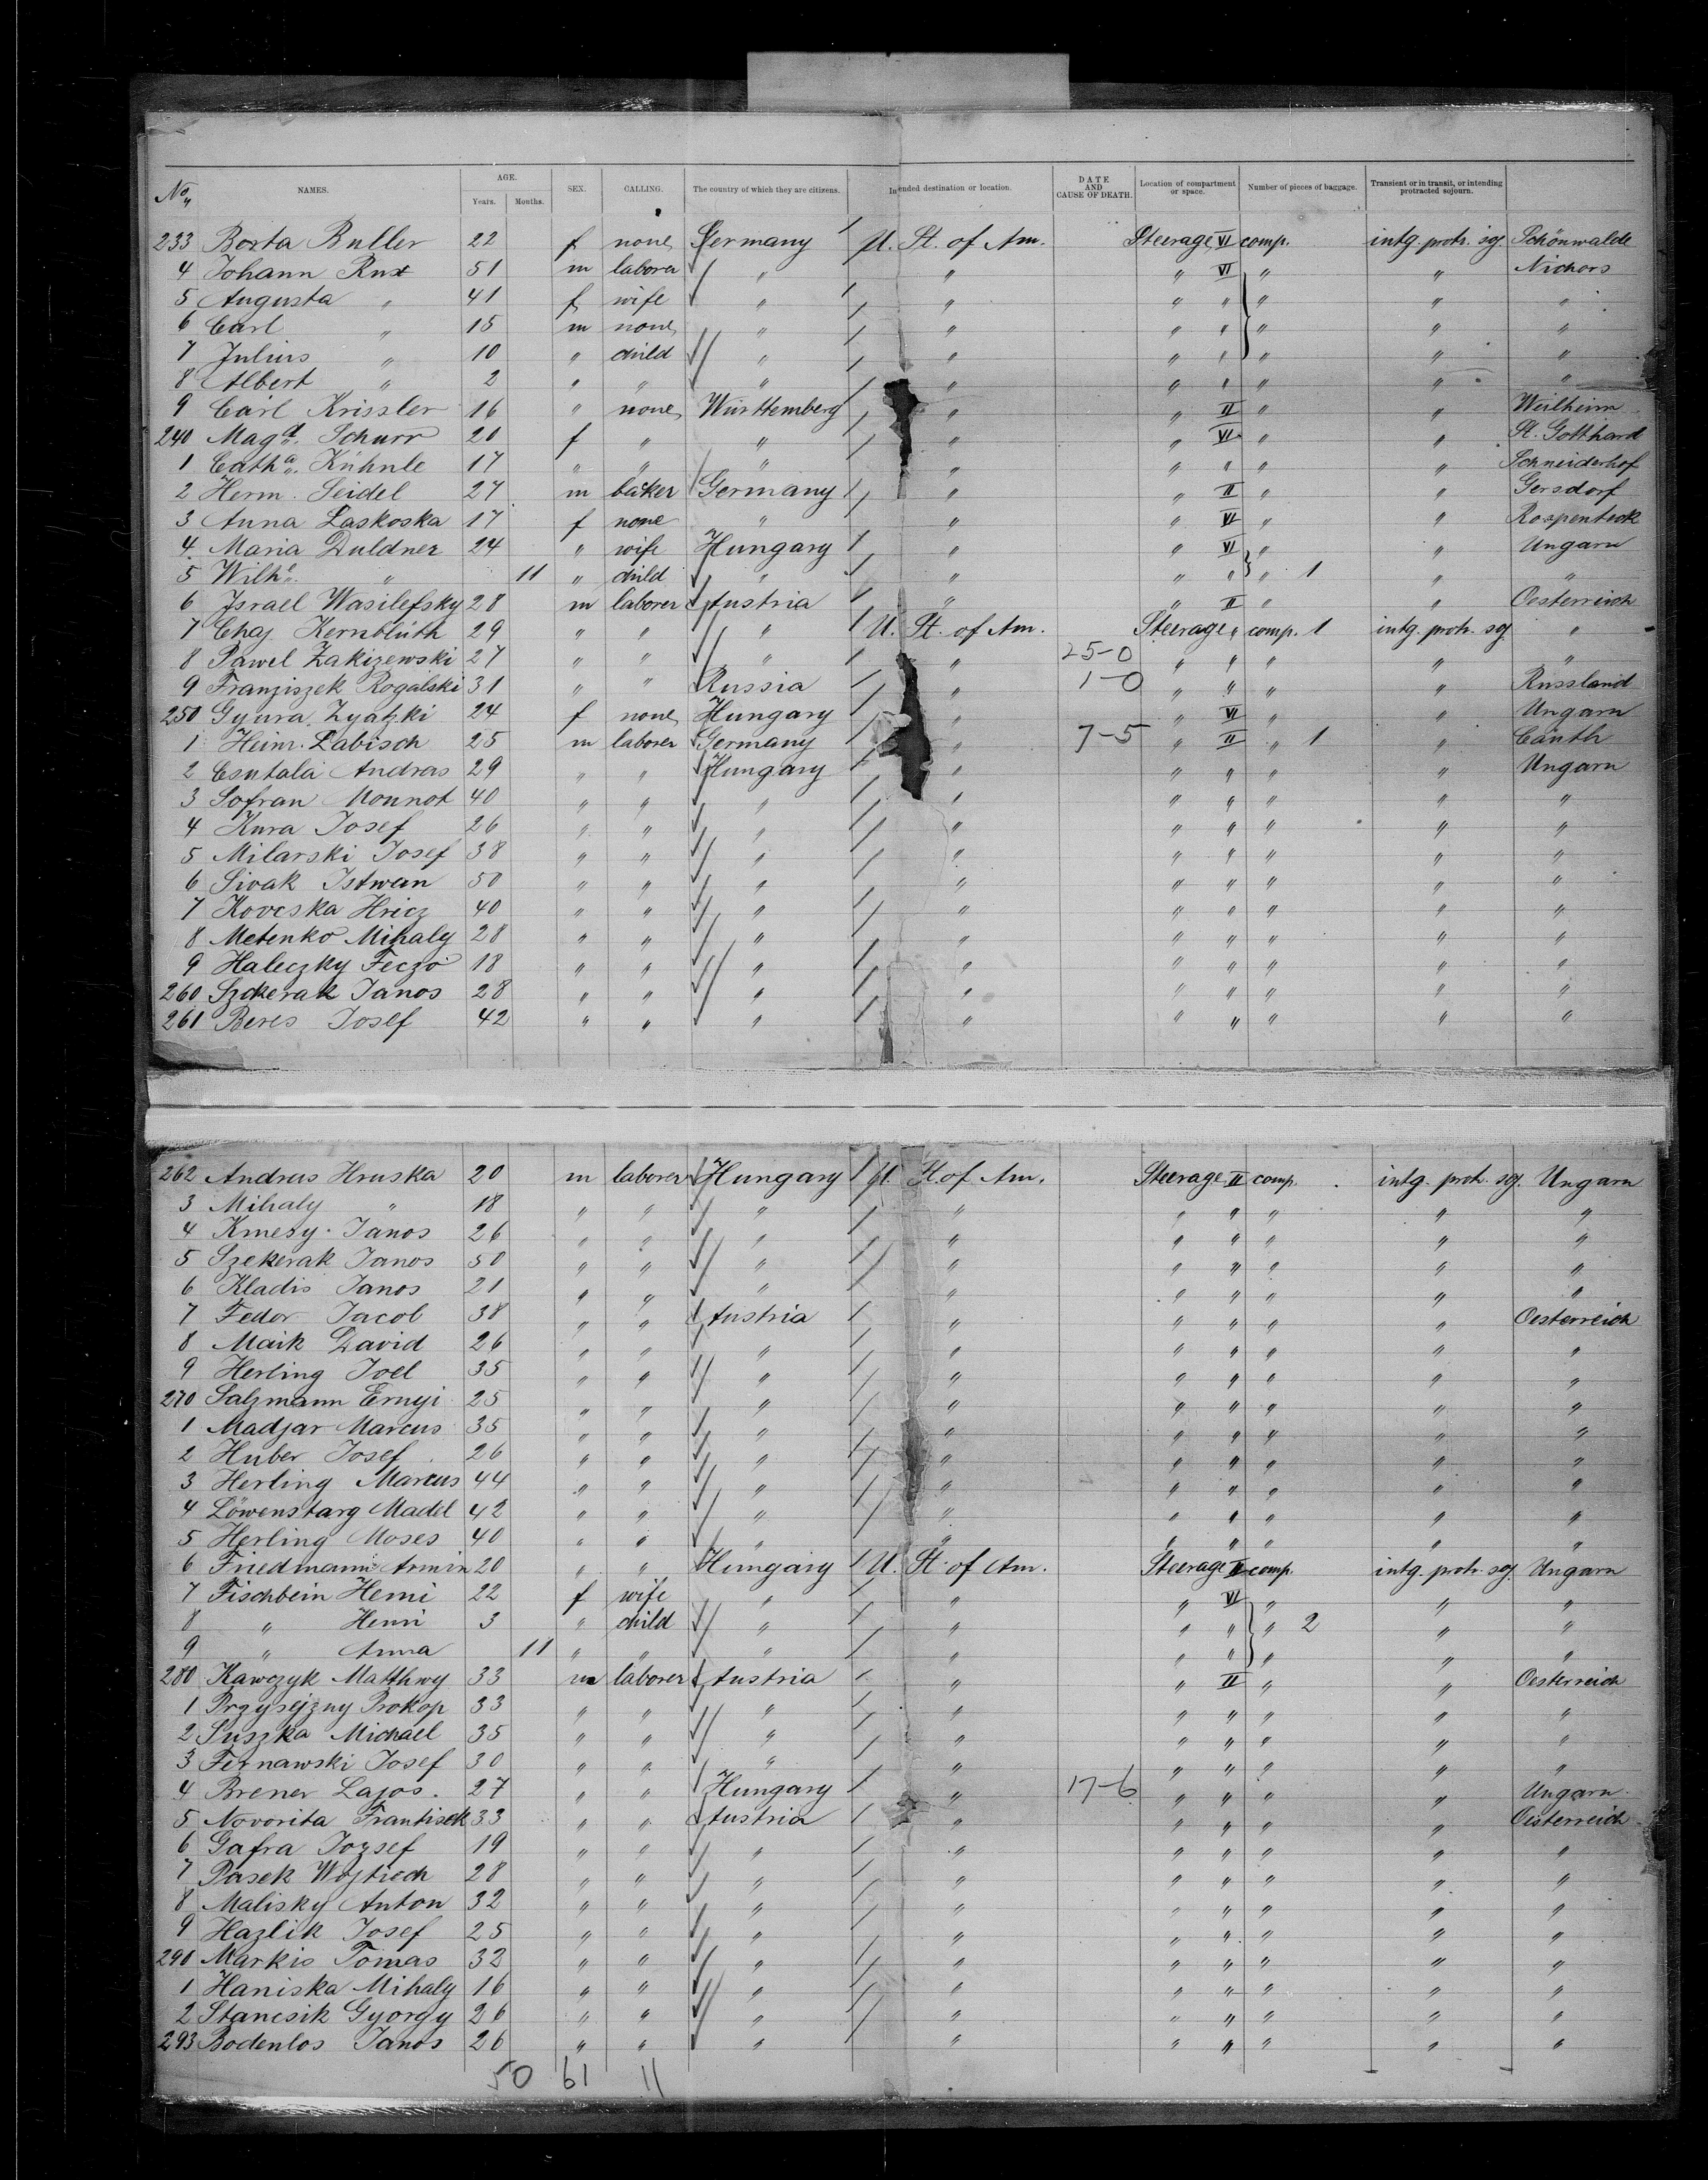 No. NAMES. AGE. Years. Months. SEX. CALLING. The country of which they are citizens. Intended destination or location. DATE AND CAUSE OF DEATH. Location of compartment or space. Number of pieces of baggage. Transient or in transit, or intending protracted sojourn.
233 Berta Buller 22 f none Germany U. St. of Am. Steerage VI comp. intg. protr. soj. Schönwalde
4 Johann Rux 51 m laborer " " " VI " " Nichors
5 Augusta " 41 f wife " " " " " " "
6 Carl " 15 m none " " " " " " "
7 Julius " 10 " child " " " " " " "
8 Albert " 2 " " " " " " " " "
9 Carl Krissler 16 " none Württemberg " " II " " Weilheim
240 Magd. Schurr 20 f " " " " VI " " St. Gotthard
1 Catha. Kühnle 17 " " " " " " " " Schneiderhof
2 Herm. Seidel 27 m baker Germany " " II " " Gersdorf
3 Anna Laskoska 17 f none " " " VI " " Rospentek
4 Maria Duldner 24 " wife Hungary " " VI " " Ungarn
5 Wilh. " 11 " child " " " " " 1 " "
6 Israel Wasilefsky 28 m laborer Austria " " II " " Oesterreich
7 Chaj Kernblüth 29 " " " U. St. of Am. Steerage " comp. 1 intg. protr. soj. "
8 Pawel Zakizewski 27 " " " " 25-0 " " " " "
9 Franziszek Rogalski 31 " " Russia " 1-0 " " " " Russland
250 Gyura Zyatzki 24 f none Hungary " " VI " " Ungarn
1 Heinr. Labisch 25 m laborer Germany " 7-5 " II " 1 " Canth
2 Csutala Andras 29 " " Hungary " " " " " Ungarn
3 Sofran Monnot 40 " " " " " " " " "
4 Kura Josef 26 " " " " " " " " "
5 Milarski Josef 38 " " " " " " " " "
6 Sivak Istwan 50 " " " " " " " " "
7 Koveska Hricz 40 " " " " " " " " "
8 Metenko Mihaly 28 " " " " " " " " "
9 Haleczky Feczo 18 " " " " " " " " "
260 Szekerak Janos 28 " " " " " " " " "
261 Beres Josef 42 " " " " " " " " "
262 Andras Hruska 20 m laborer Hungary U. St. of Am. Steerage II comp. intg. protr. soj. Ungarn
3 Mihaly " 18 " " " " " " " " "
4 Kmesy Janos 26 " " " " " " " " "
5 Szekerak Janos 50 " " " " " " " " "
6 Kladis Janos 21 " " " " " " " " "
7 Fedor Jacob 38 " " Austria " " " " " Oesterreich
8 Maik David 26 " " " " " " " " "
9 Herling Joel 35 " " " " " " " " "
270 Salzmann Ernyi 25 " " " " " " " " "
1 Madjar Marcus 35 " " " " " " " " "
2 Huber Josef 26 " " " " " " " " "
3 Herling Marcus 44 " " " " " " " " "
4 Löwenstarg Madel 42 " " " " " " " " "
5 Herling Moses 40 " " " " " " " " "
6 Friedmann Armin 20 " " Hungary U. St. of Am. Steerage II comp. intg. protr. soj. Ungarn
7 Fischbein Hemi 22 f wife " " " VI " " "
8 " Henri 3 " child " " " " " 2 " "
9 " Anna 11 " " " " " " " " "
280 Kawczyk Matthwy 33 m laborer Austria " " II " " Oesterreich
1 Przysejzny Prokop 33 " " " " " " " " "
2 Suszka Michael 35 " " " " " " " " "
3 Fernawski Josef 30 " " " " " " " " "
4 Brener Lajos. 27 " " Hungary " 17-6 " " " " Ungarn
5 Novorita Frantisek 33 " " Austria " " " " " Oesterreich
6 Gafra Jozsef 19 " " " " " " " " "
7 Pasek Wojtiech 28 " " " " " " " " "
8 Malisky Anton 32 " " " " " " " " "
9 Hazlik Josef 25 " " " " " " " " "
290 Markis Tomas 32 " " " " " " " " "
1 Haniska Mihaly 16 " " " " " " " " "
2 Stancsik Gyorgy 26 " " " " " " " " "
293 Bodenlos Janos 26 " " " " " " " " "
50 61 11